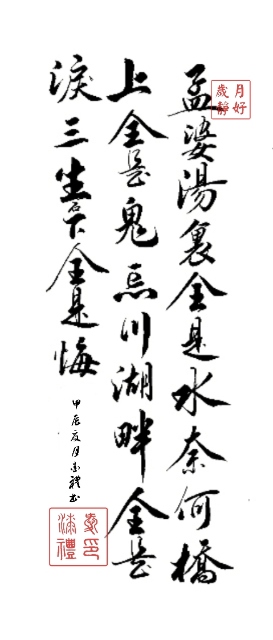 孟婆湯裏全是水奈何橋
上全是鬼忘川湖畔全是
淚三生石下全是悔
甲辰夏月
月好
歲靜